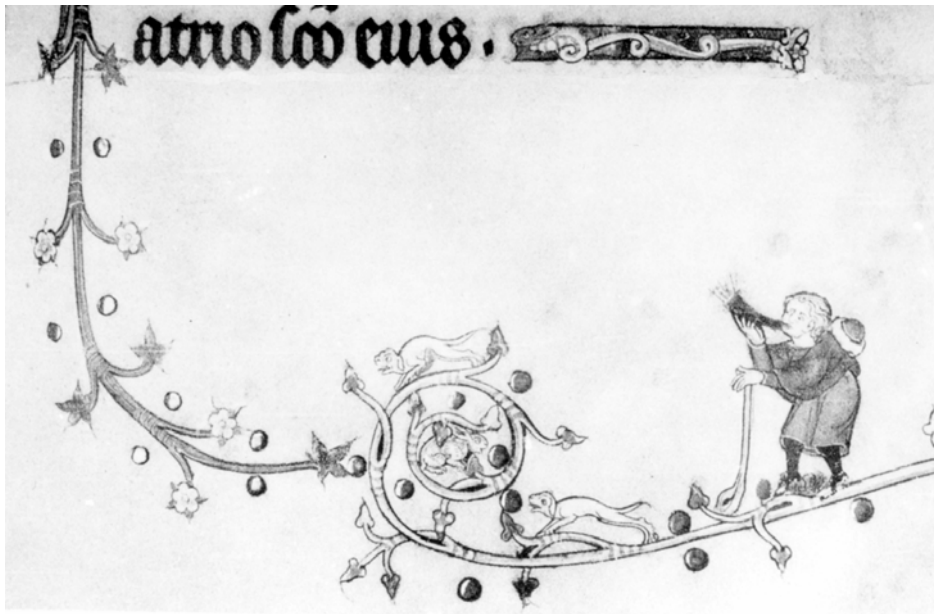 atrio sc̄o eius .